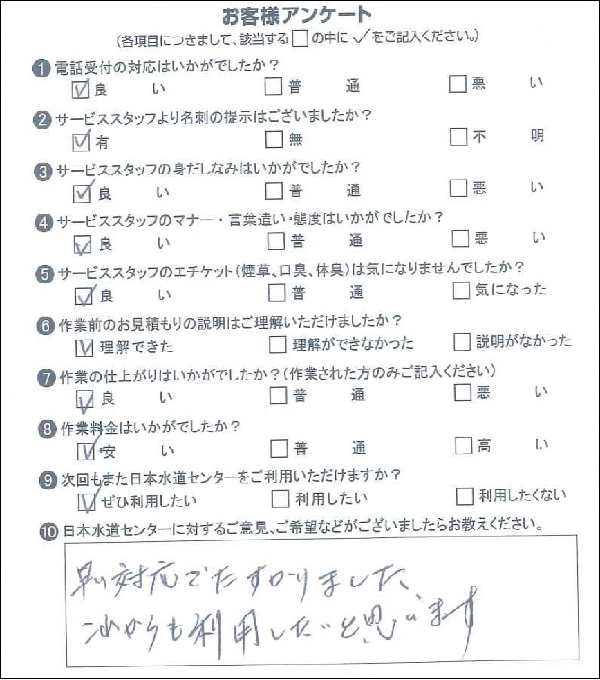 お客様アンケート
(各項目につきまして、該当する□の中に✓をご記入ください。)
❶ 電話受付の対応はいかがでしたか?
☑良い □普通 □悪い
❷ サービススタッフより名刺の提示はございましたか?
☑有 □無 □不明
❸ サービススタッフの身だしなみはいかがでしたか?
☑良い □普通 □悪い
❹ サービススタッフのマナー・言葉遣い・態度はいかがでしたか?
☑良い □普通 □悪い
❺ サービススタッフのエチケット(煙草、口臭、体臭)は気になりませんでしたか?
☑良い □普通 □気になった
❻ 作業前のお見積もりの説明はご理解いただけましたか?
☑理解できた □理解ができなかった □説明がなかった
❼ 作業の仕上がりはいかがでしたか?(作業された方のみご記入ください)
☑良い □普通 □悪い
❽ 作業料金はいかがでしたか?
☑安い □普通 □高い
❾ 次回もまた日本水道センターをご利用いただけますか?
☑ぜひ利用したい □利用したい □利用したくない
❿ 日本水道センターに対するご意見、ご希望などがございましたらお教えください。
早い対応でたすかりました、
これからも利用したいと思います